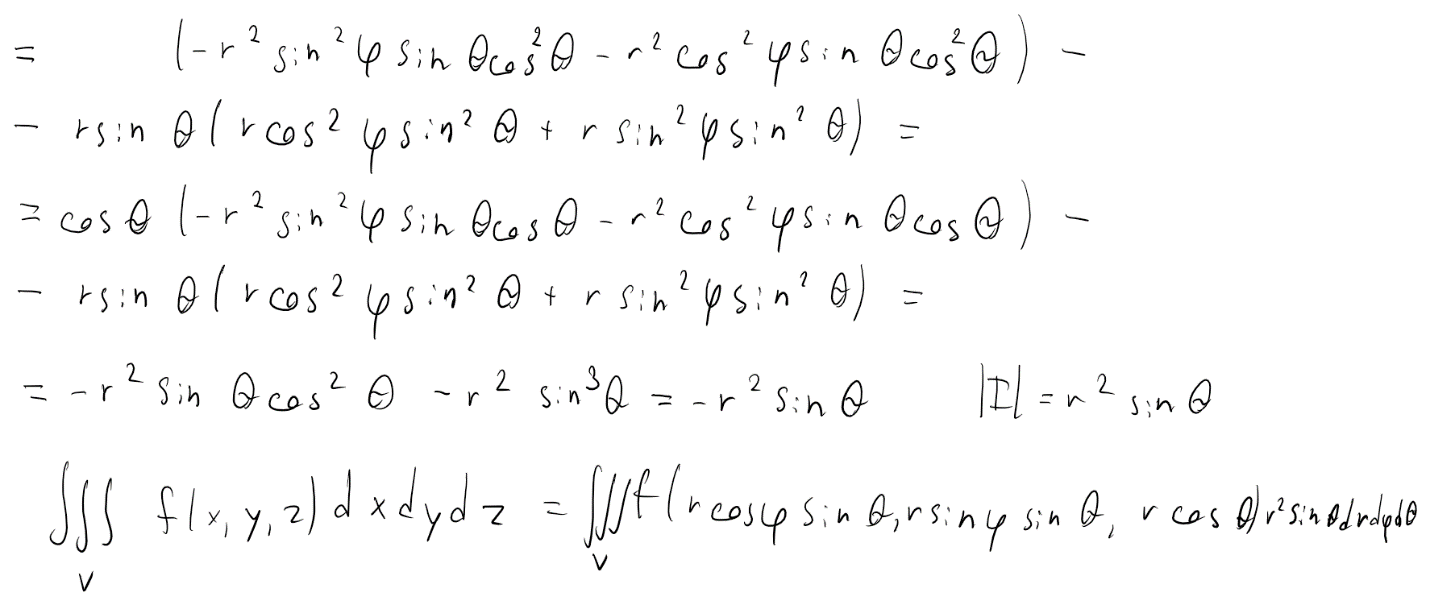 = (-r² sin²φ sin θcos²θ - r² cos²φ sin θcos²θ) -
- r sin θ(r cos²φ sin²θ + r sin²φ sin²θ) =
= cos θ (-r² sin²φ sin θcos θ - r² cos²φ sin θcos θ) -
- r sin θ(r cos²φ sin²θ + r sin²φ sin²θ) =
= -r² sin θ cos² θ - r² sin³θ = -r² sin θ |I| = r² sin θ
∭_V f(x, y, z) dxdydz = ∭_V f(r cosφ sin θ, r sinφ sin θ, r cos θ) r² sin θ dr dφ dθ